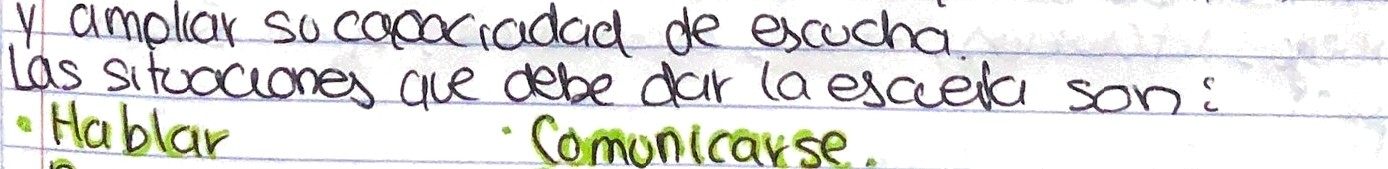 y ampliar su capaciadad de escucha.
Las situaciones que debe dar la escuela son:
· Hablar · Comunicarse.